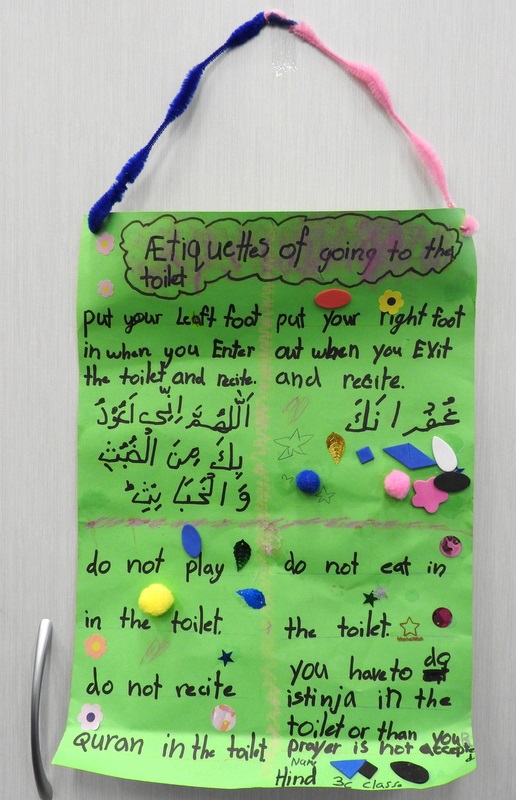 Ætiquettes of going to the
toilet
put your Leaft foot
in when you Enter
the toilet and recite.
اَللّٰهُمَّ اِنِّى اَعُوْذُ
بِكَ مِنَ الْخُبُثِ
وَ الْخَبَا ىِٔثِ
put your right foot
out when you EXit
and recite.
غُفْرَانَكَ
do not play
in the toilet.
do not recite
Quran in the toilet
do not eat in
the toilet.
you have to do
istinja in the
toilet or than your
prayer is not accepted
Hind
3c class